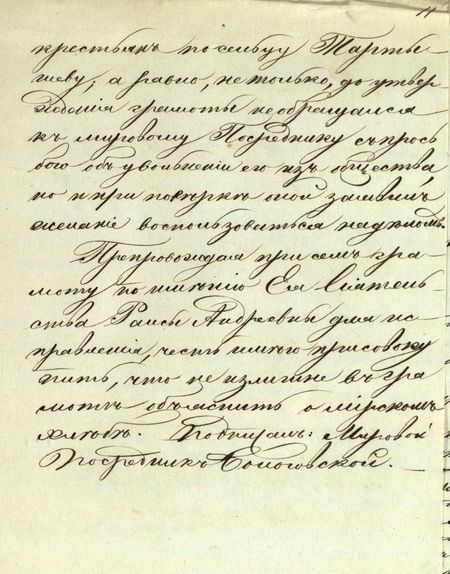 11
крестьянъ по сельцу Тарты-
шеву; а равно, не только, до утвер
жденія грамоты не обращался
къ мировому Посреднику съ прось
бою объ увольненіи его изъ общества,
но и при повѣркѣ оной заявилъ
желаніе воспользоваться надѣломъ.
Препровождая при семъ гра-
моту по имѣнію Ея Сіятель-
ства Раисы Андреевны для ис
правленія, честь имѣю присовоку
пить, что не излишне въ гра
мотѣ объяснить о мірскомъ
хлѣбѣ. Подписалъ: Мировой
Посредникъ Бологовской.